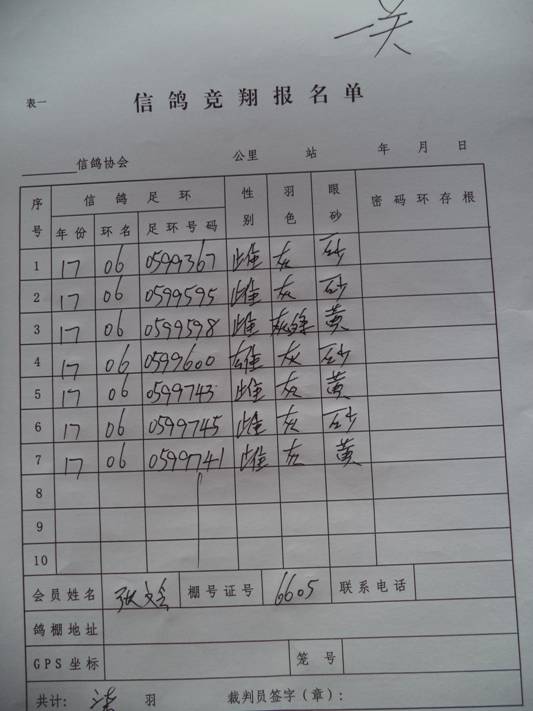 一关
表一
信鸽竞翔报名单
信鸽协会 公里 站 年 月 日
序号 信鸽足环 性别 羽色 眼砂 密码环存根
年份 环名 足环号码
1 17 06 0599367 雌 灰 砂
2 17 06 0599595 雌 灰 砂
3 17 06 0599598 雌 灰绛 黄
4 17 06 0599600 雄 灰 砂
5 17 06 0599743 雌 灰 黄
6 17 06 0599745 雌 灰 砂
7 17 06 0599741 雌 灰 黄
8
9
10
会员姓名 张 棚号证号 6605 联系电话
鸽棚地址
GPS坐标 笼号
共计: 羽 裁判员签字(章):